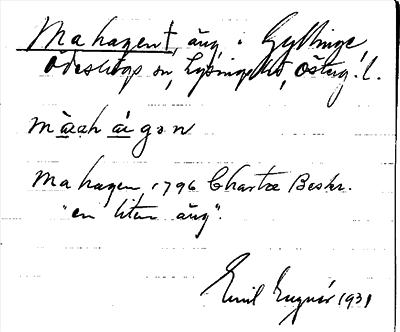 Mahagen †, äng i Gyllinge,
Ödeshögs sn, Lysings hd, Österg. l.
màrah ái gǝn
Mahagen, 1796 Chartæ Beskr.
"en liten äng".
Emil 1931